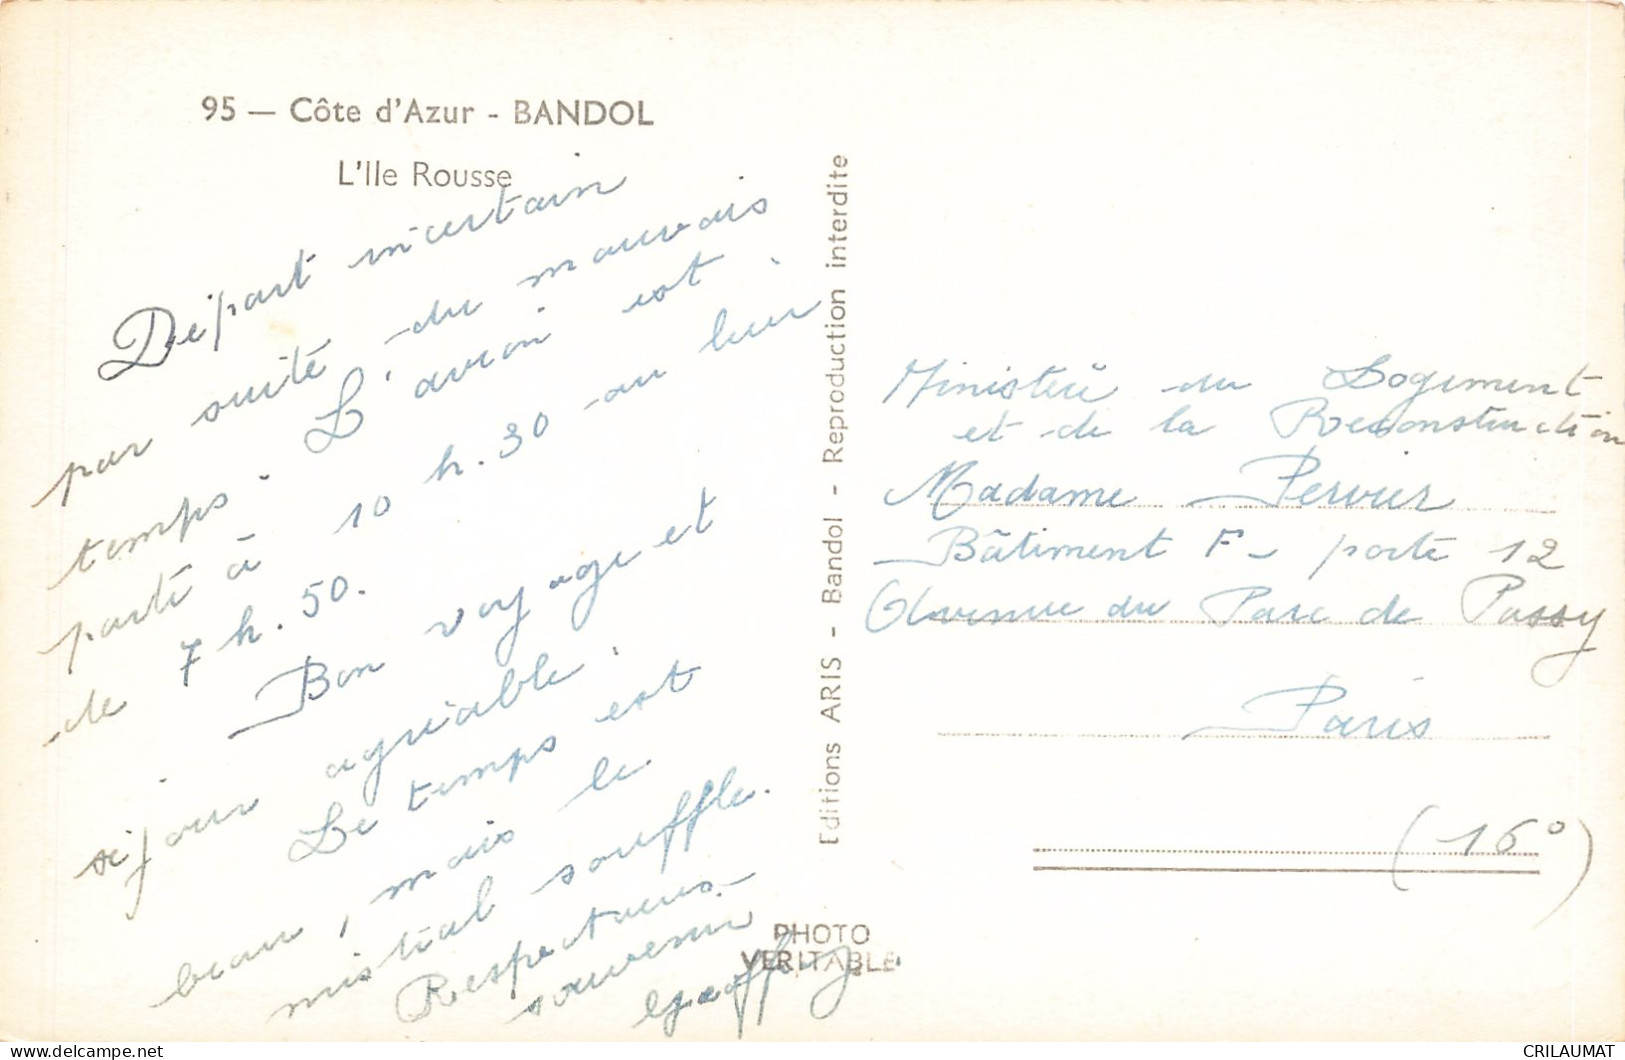 95 — Côte d'Azur - BANDOL
L'Ile Rousse
Départ incertain
par suite du mauvais
temps. L'avion est
parti à 10 h. 30 au lieu
de 7 h. 50.
Bon voyage et
séjour agréable.
Le temps est
beau, mais le
mistral souffle.
Respectueux
souvenir
Editions ARIS - Bandol - Reproduction interdite
PHOTO
VERITABLE
Ministère du Logement
et de la Reconstruction
Madame Pervier
Bâtiment F - porte 12
Avenue du Parc de Passy
Paris
(16°)
CRILAUMAT